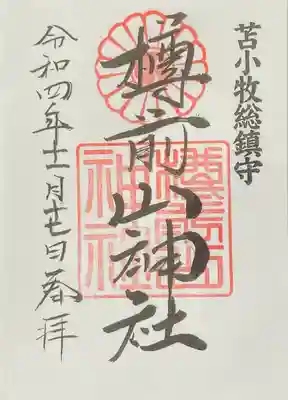 苫小牧総鎮守
樽前山神社
令和四年十一月十七日奉拝
樽前山神社